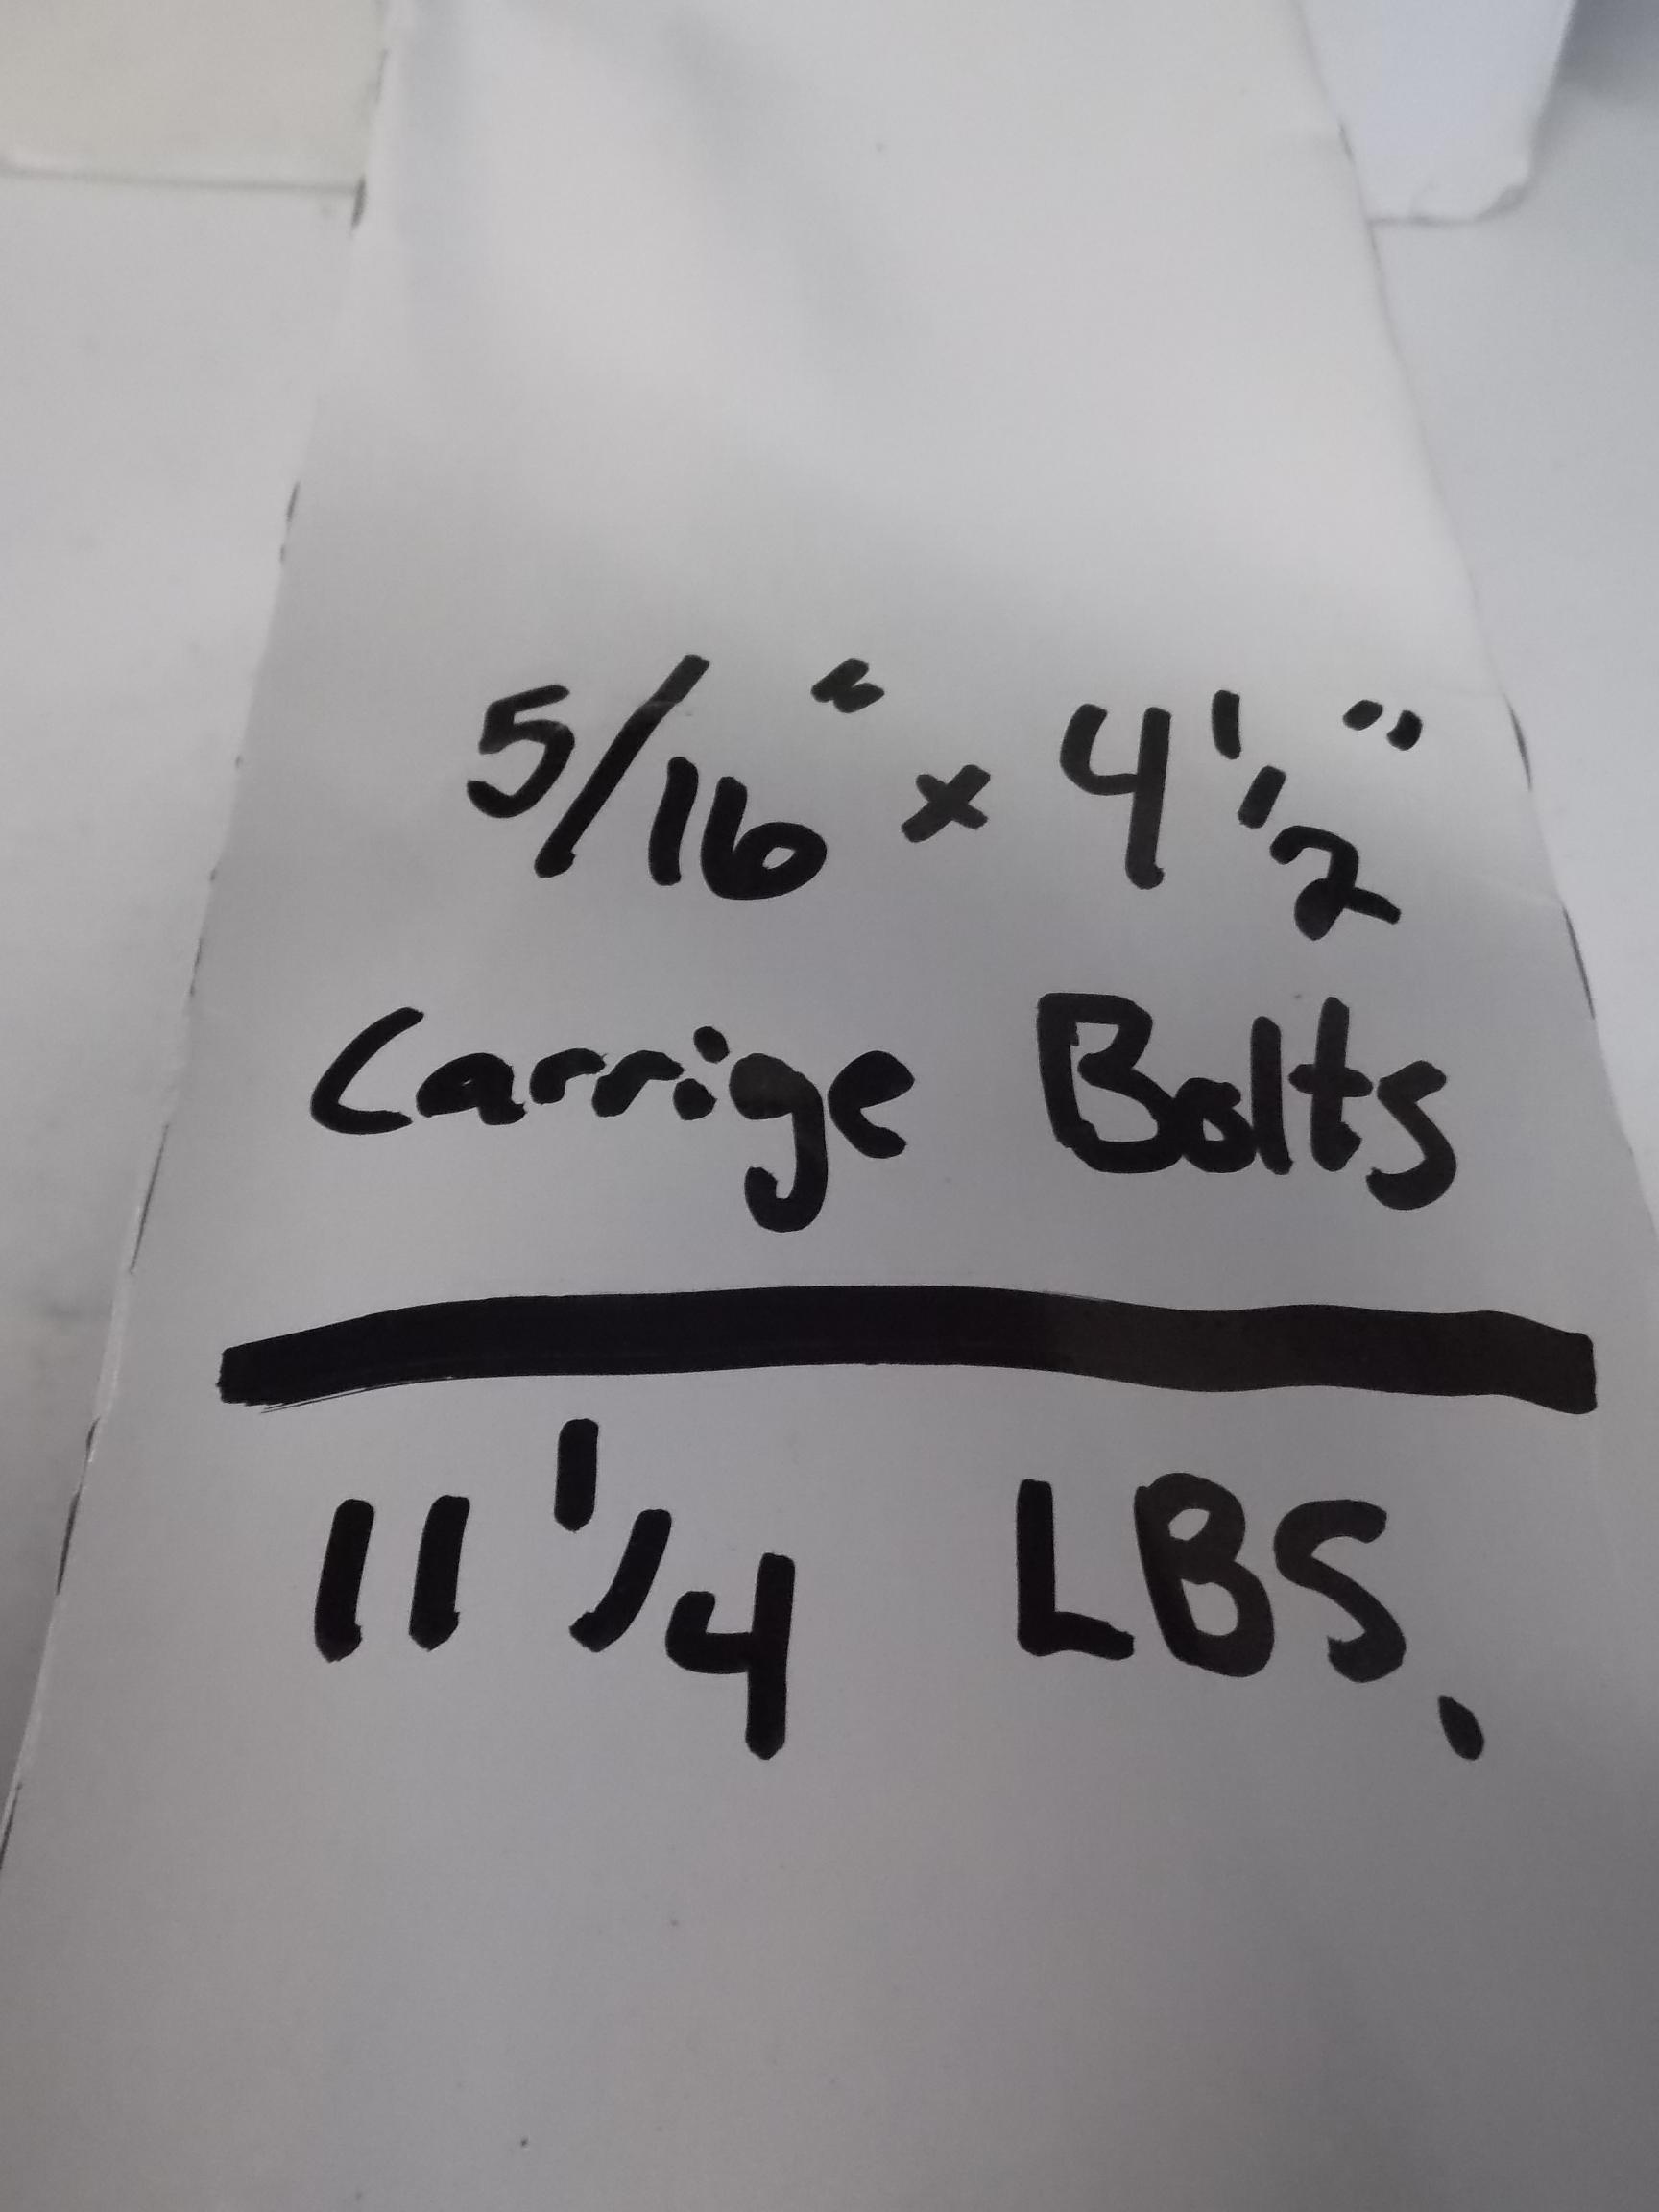 5/16" x 4 1/2"
Carrige Bolts
11 1/4 LBS.